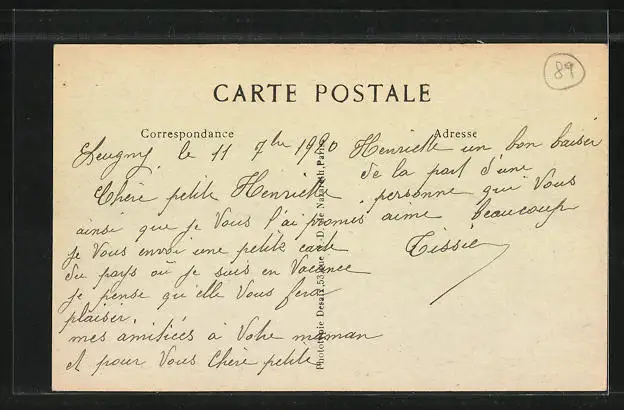 89
CARTE POSTALE
Correspondance
Adresse
Leugny le 11 7bre 1920
Chère petite Henriette
ainsi que je Vous l'ai promis
je Vous envoi une petite carte
du pays où je suis en Vacance
je pense qu'elle Vous fera
plaisir.
mes amitiées à Votre maman
et pour Vous Chère petite
Henriette un bon baiser
de la part d'une
personne qui Vous
aime beaucoup
Tissier
Phototypie Desaix, 53, rue N.-D. de Nazareth, Paris